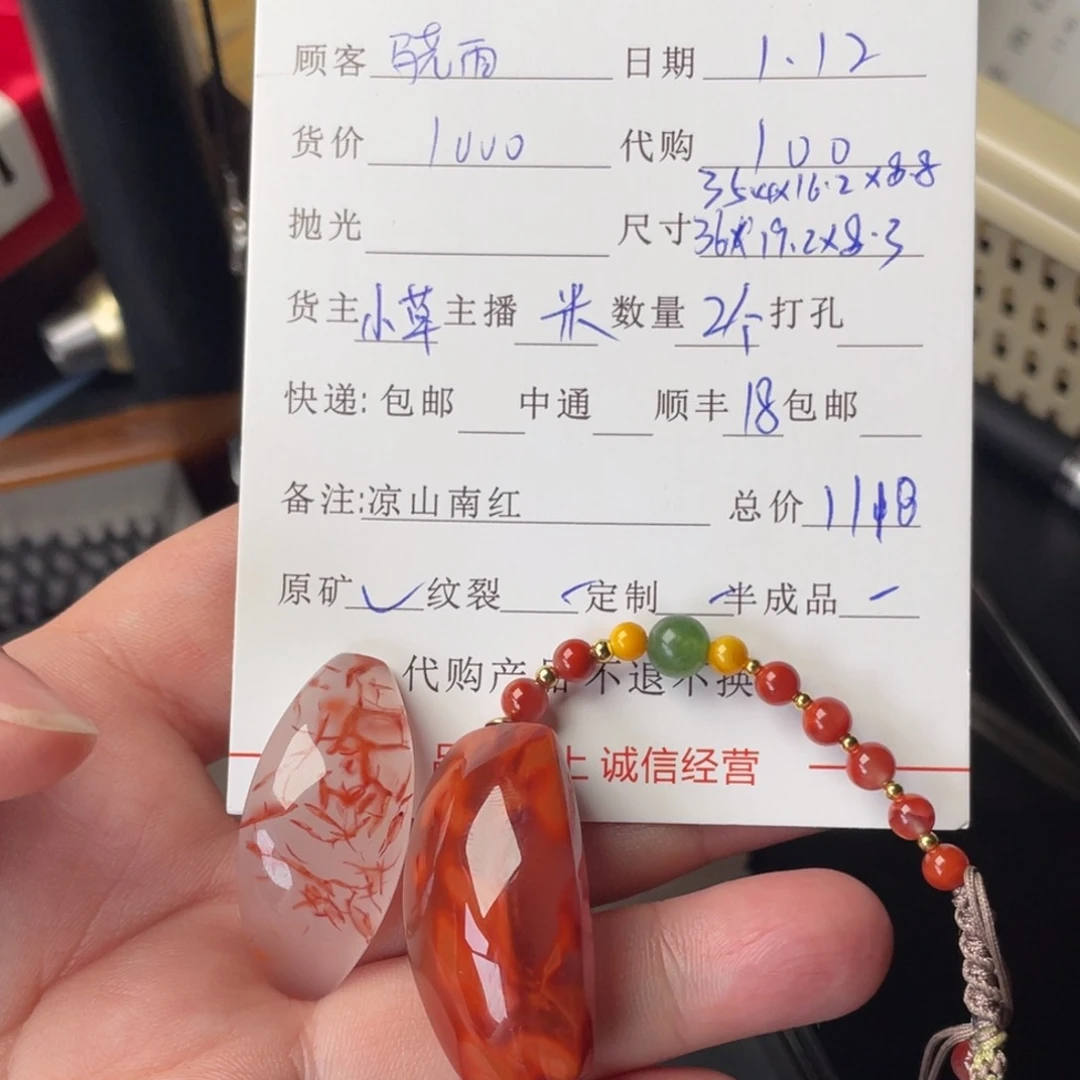 顾客 骁雨 日期 1.12
货价 1000 代购 100
35.4x16.2x8.8
抛光 尺寸 36x19.2x8.3
货主 小草 主播 米 数量 2个 打孔
快递: 包邮 中通 顺丰 18 包邮
备注: 凉山南红 总价 1118
原矿 ✓ 纹裂 定制 半成品
代购产品不退不换
上 诚信经营